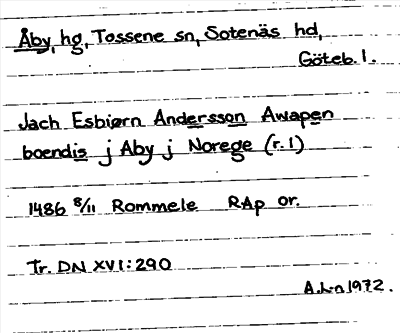 Åby, hg, Tossene sn, Sotenäs hd,
Göteb. l.
Jach Esbiørn Andersson Awapen
boendis j Aby j Norege (r. 1)
1486 8/11 Rommele RAp or.
Tr. DN XVI:290
A.L-n 1972.